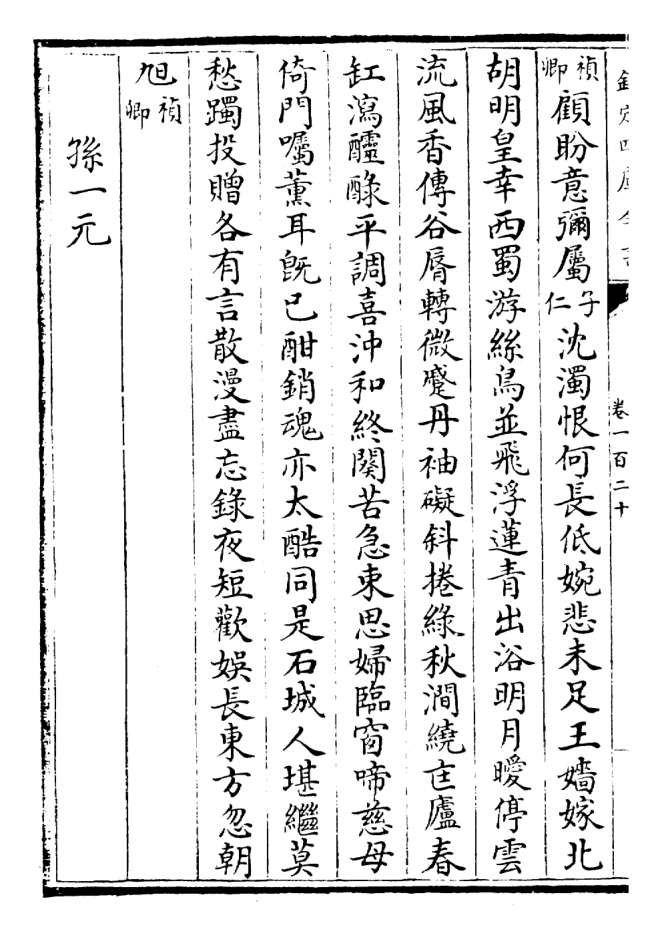 欽定四庫全書
卷一百二十
禎卿顧盼意彌屬子仁沈濁恨何長低婉悲未足王嬙嫁北
胡明皇幸西蜀游絲鳥並飛浮蓮青出浴明月曖停雲
流風香傳谷脣轉微蹙丹袖礙斜捲綠秋澗繞匡廬春
缸瀉醽醁平調喜沖和終闋苦急束思婦臨窗啼慈母
倚門囑薰耳旣已酣銷魂亦太酷同是石城人堪繼莫
愁躅投贈各有言散漫盡忘錄夜短歡娛長東方忽朝
旭禎卿
孫一元